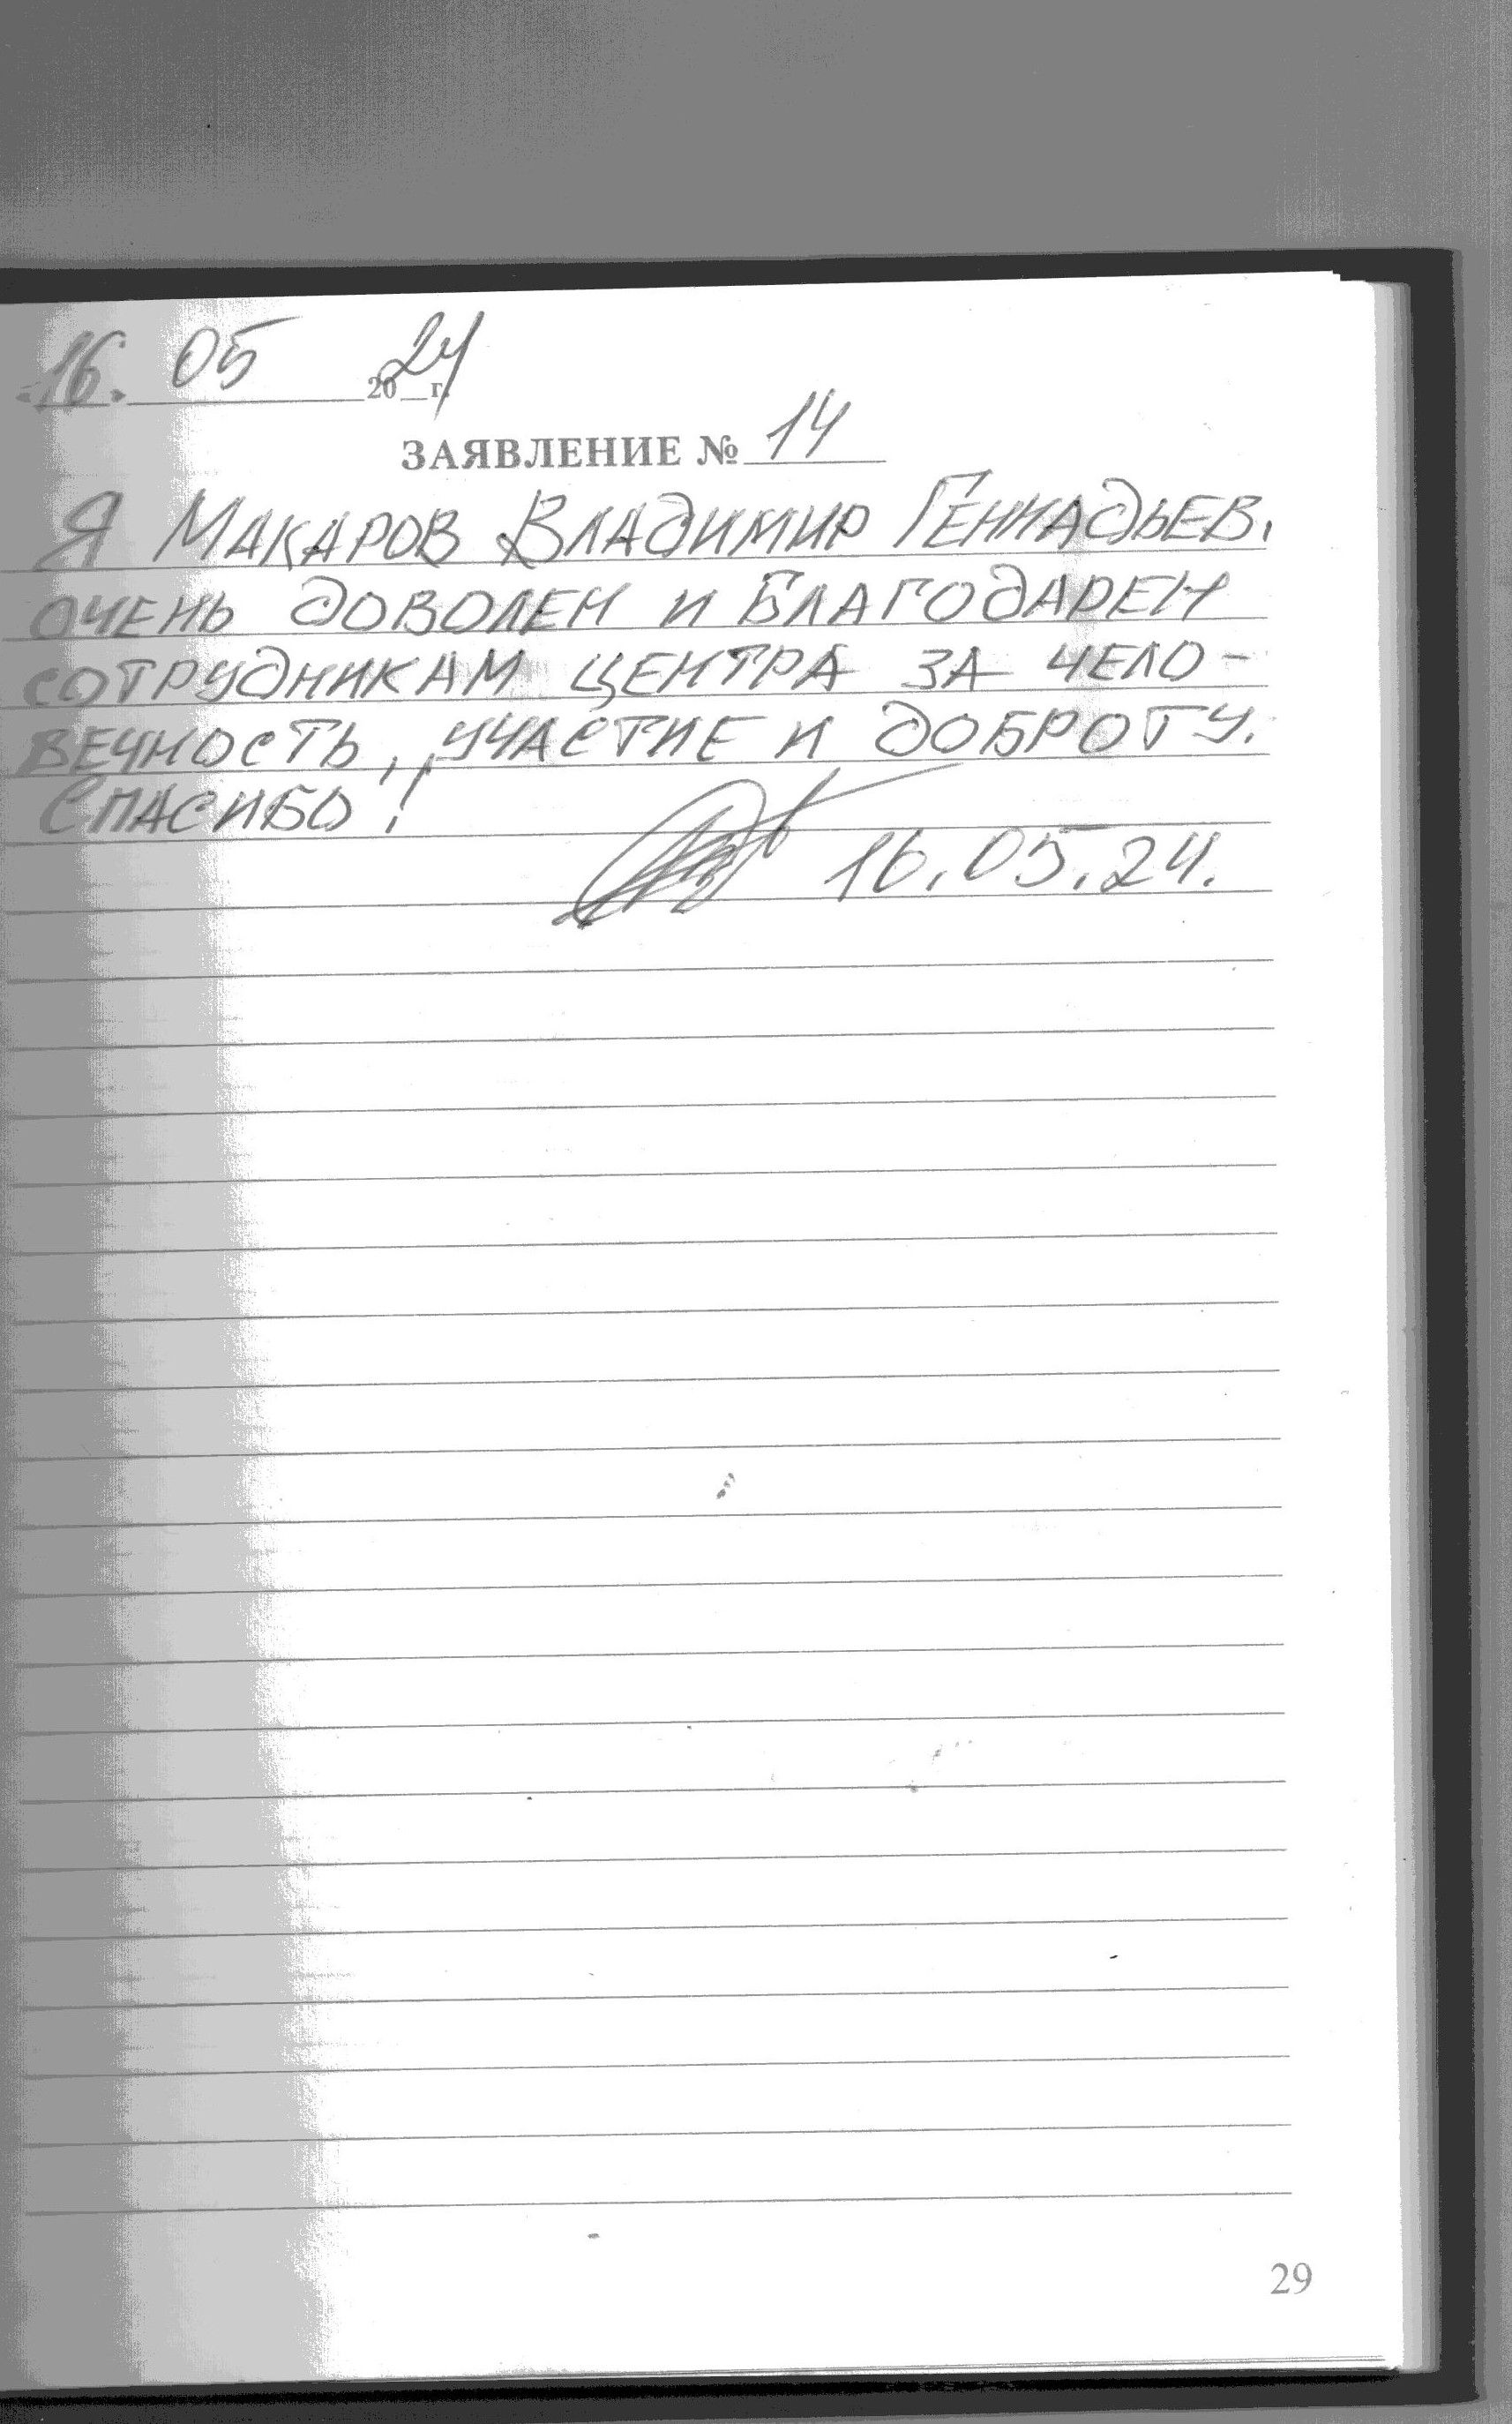 «16» 05 2024 г.
ЗАЯВЛЕНИЕ № 14
Я Макаров Владимир Геннадьев.
очень доволен и благодарен
сотрудникам центра за чело-
вечность, участие и доброту.
Спасибо!
16.05.24.
29